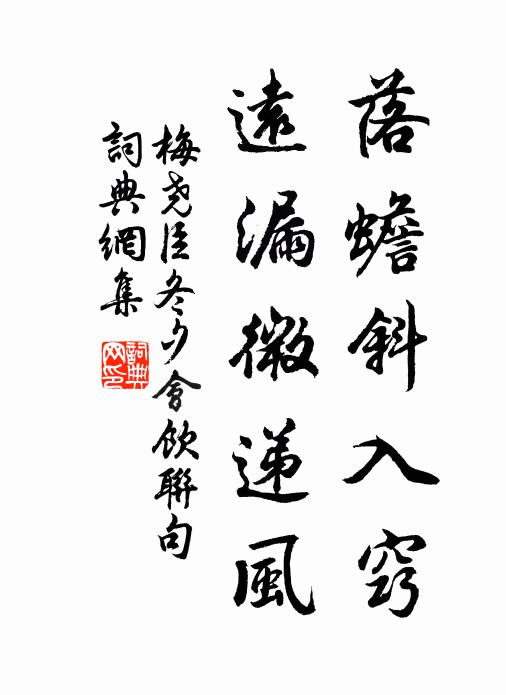 落蟾斜入窍
遠漏微递風
梅尧臣冬夕會飲聯句
詞典網集
詞典网印